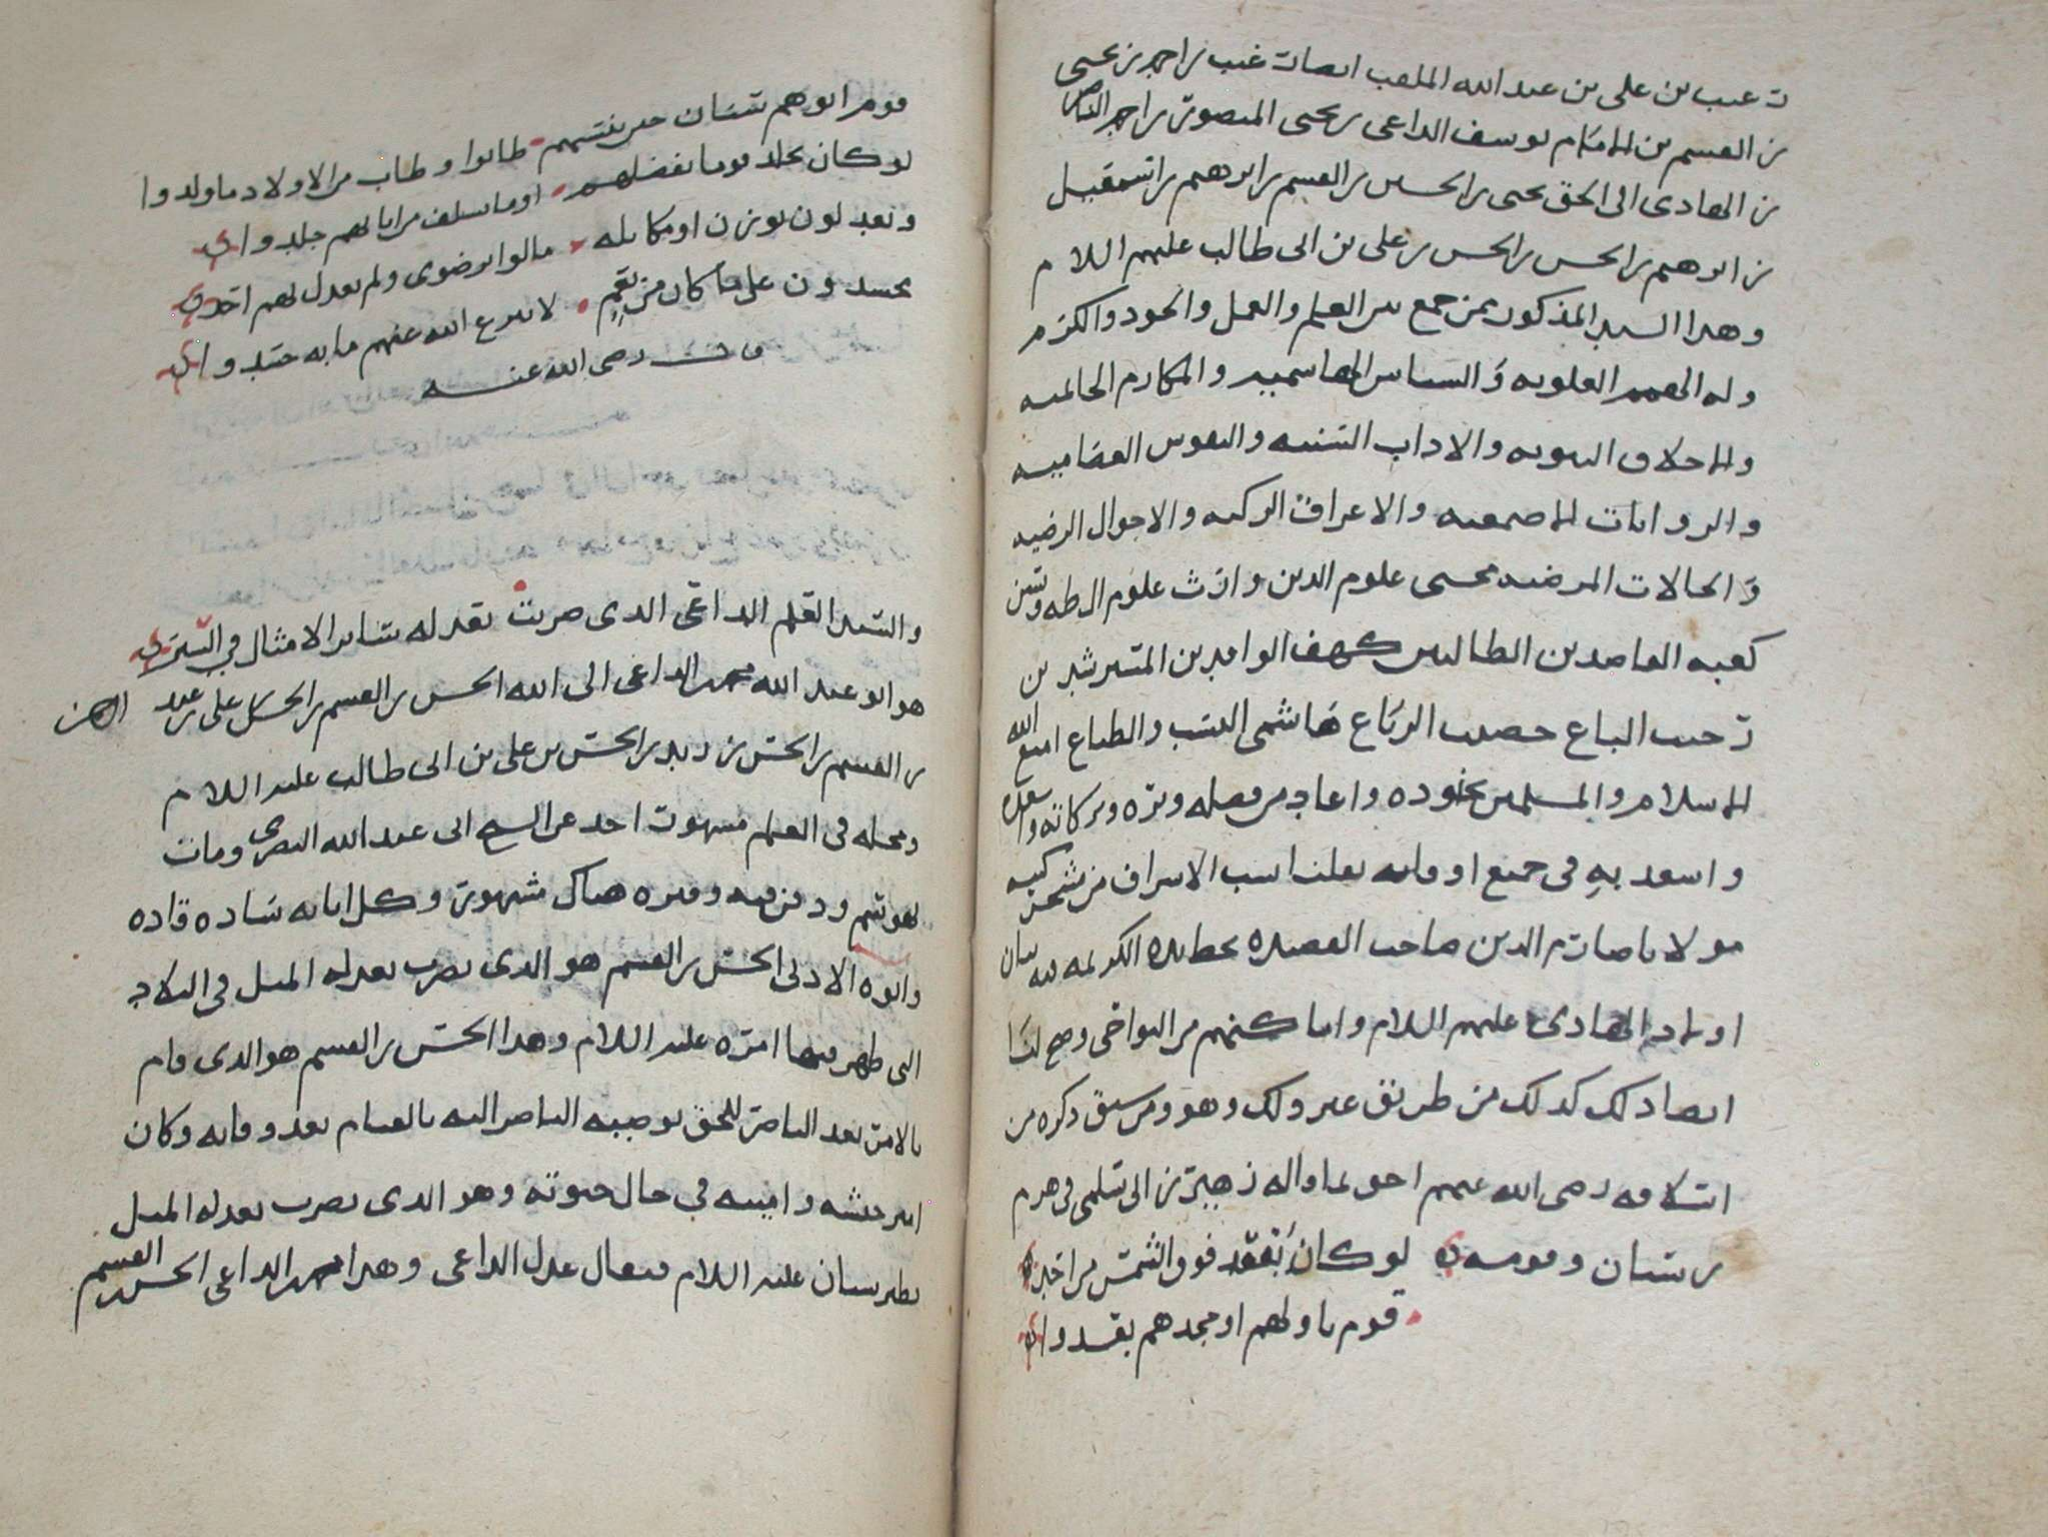 بن علي بن عبد الله الملقب
بن القسم بن الامام يوسف الداعي بن يحيى المنصور بن احمد الناصر
بن الهادي الى الحق يحيى بن الحسين بن القسم بن ابرهيم بن اسمعيل
بن ابرهيم بن الحسن بن الحسن بن علي بن ابي طالب عليهم السلام
وهذا السيد المذكور ممن جمع بين العلم والعمل والجود والكرم
وله الهمم العلويه و الهاشميه والمكارم الحاتميه
والاخلاق النبويه والاداب السنيه والنفوس العصاميه
والروايات الاصمعيه والاعراق الزكيه والاحوال الرضيه
والحالات المرضيه محيى علوم الدين وارث علوم ال طه ويس
كعبه القاصدين الطالبين كهف الوافدين المسترشدين
رحيب الباع خصيب الرباع هاشمي النسب والطباع امتع الله
الاسلام والمسلمين بجوده واعاد من فضله وبره وبركاته
واسعد به في جميع اوقاته نقلنا نسب الاشراف من مشجر
مولانا صارم الدين صاحب القصيده بخط يده الكريمه فيه بيان
اولاد الهادي عليهم السلام واماكنهم من النواحي وصح لنا
ايضا ذلك كذلك من طريق غير ذلك وهو ومن سبق ذكره من
اسلافه رضي الله عنهم احق بما قاله زهير بن ابي سلمى في هرم
بن سنان وقومه لو كان يقعد فوق الشمس من احد
قوم باولهم او مجدهم قعدوا
قوم ابوهم سنان حين ينسبهم طابوا وطاب من الاولاد ما ولدوا
لو كان يخلد قوما بفضلهم او ما سلف من ابائهم خلدوا
او يعدلون بوزن او مكايله مالوا برضوى ولم يعدل لهم احد
محسدون على ما كان من نعم لا ينزع الله عنهم ما به حسدوا
قال رضي الله عنه
والسيد العلم الداعي الذي ضربت بعدله سائر الامثال في السير
هو ابو عبد الله محمد الداعي الى الله الحسن بن القسم بن الحسن بن علي بن عبد الرحمن
بن القسم بن الحسن بن زيد بن الحسن بن علي بن ابي طالب عليه السلام
ومحله في العلم مشهور اخذ عن الشيخ ابي عبد الله البصري ومات
بهوسم ودفن فيه وقبره هناك مشهور وكل ابائه ساده قاده
وابوه الادنى الحسن بن القسم هو الذي يضرب بعدله المثل في البلاد
التي ظهر فيها امره عليه السلام وهذا الحسن بن القسم هو الذي قام
بالامر بعد الناصر للحق بوصيه الناصر اليه بالقيام بعد وفاته وكان
امير جيشه وامينه في حال حيوته وهو الذي يضرب بعدله المثل
بطبرستان عليه السلام فيقال عدل الداعي وهذا محمد الداعي الحسن بن القسم